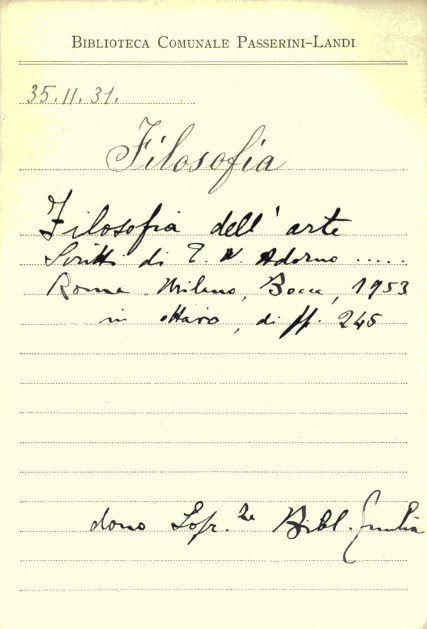 BIBLIOTECA COMUNALE PASSERINI-LANDI
35.II.31.
Filosofia
Filosofia dell'arte
Scritti di T. W. Adorno .....
Roma Milano, Bocca, 1953
in ottavo, di pp. 245
dono Sopr. Bibl.